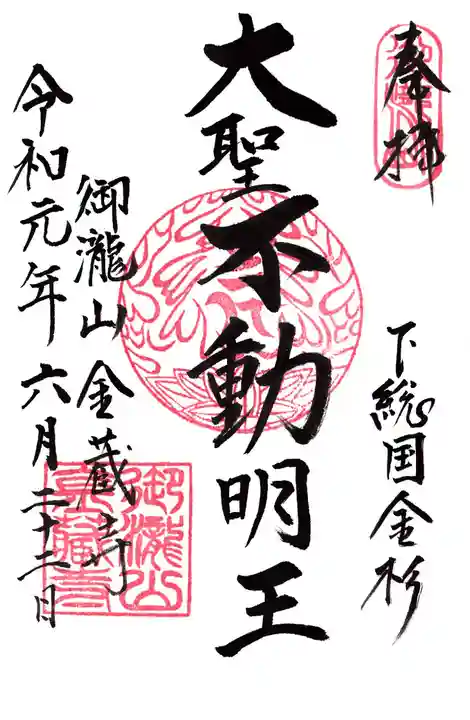 奉拝
下総国金杉
大聖不動明王
御瀧山金蔵寺
令和元年六月二十二日
御瀧山
金蔵寺